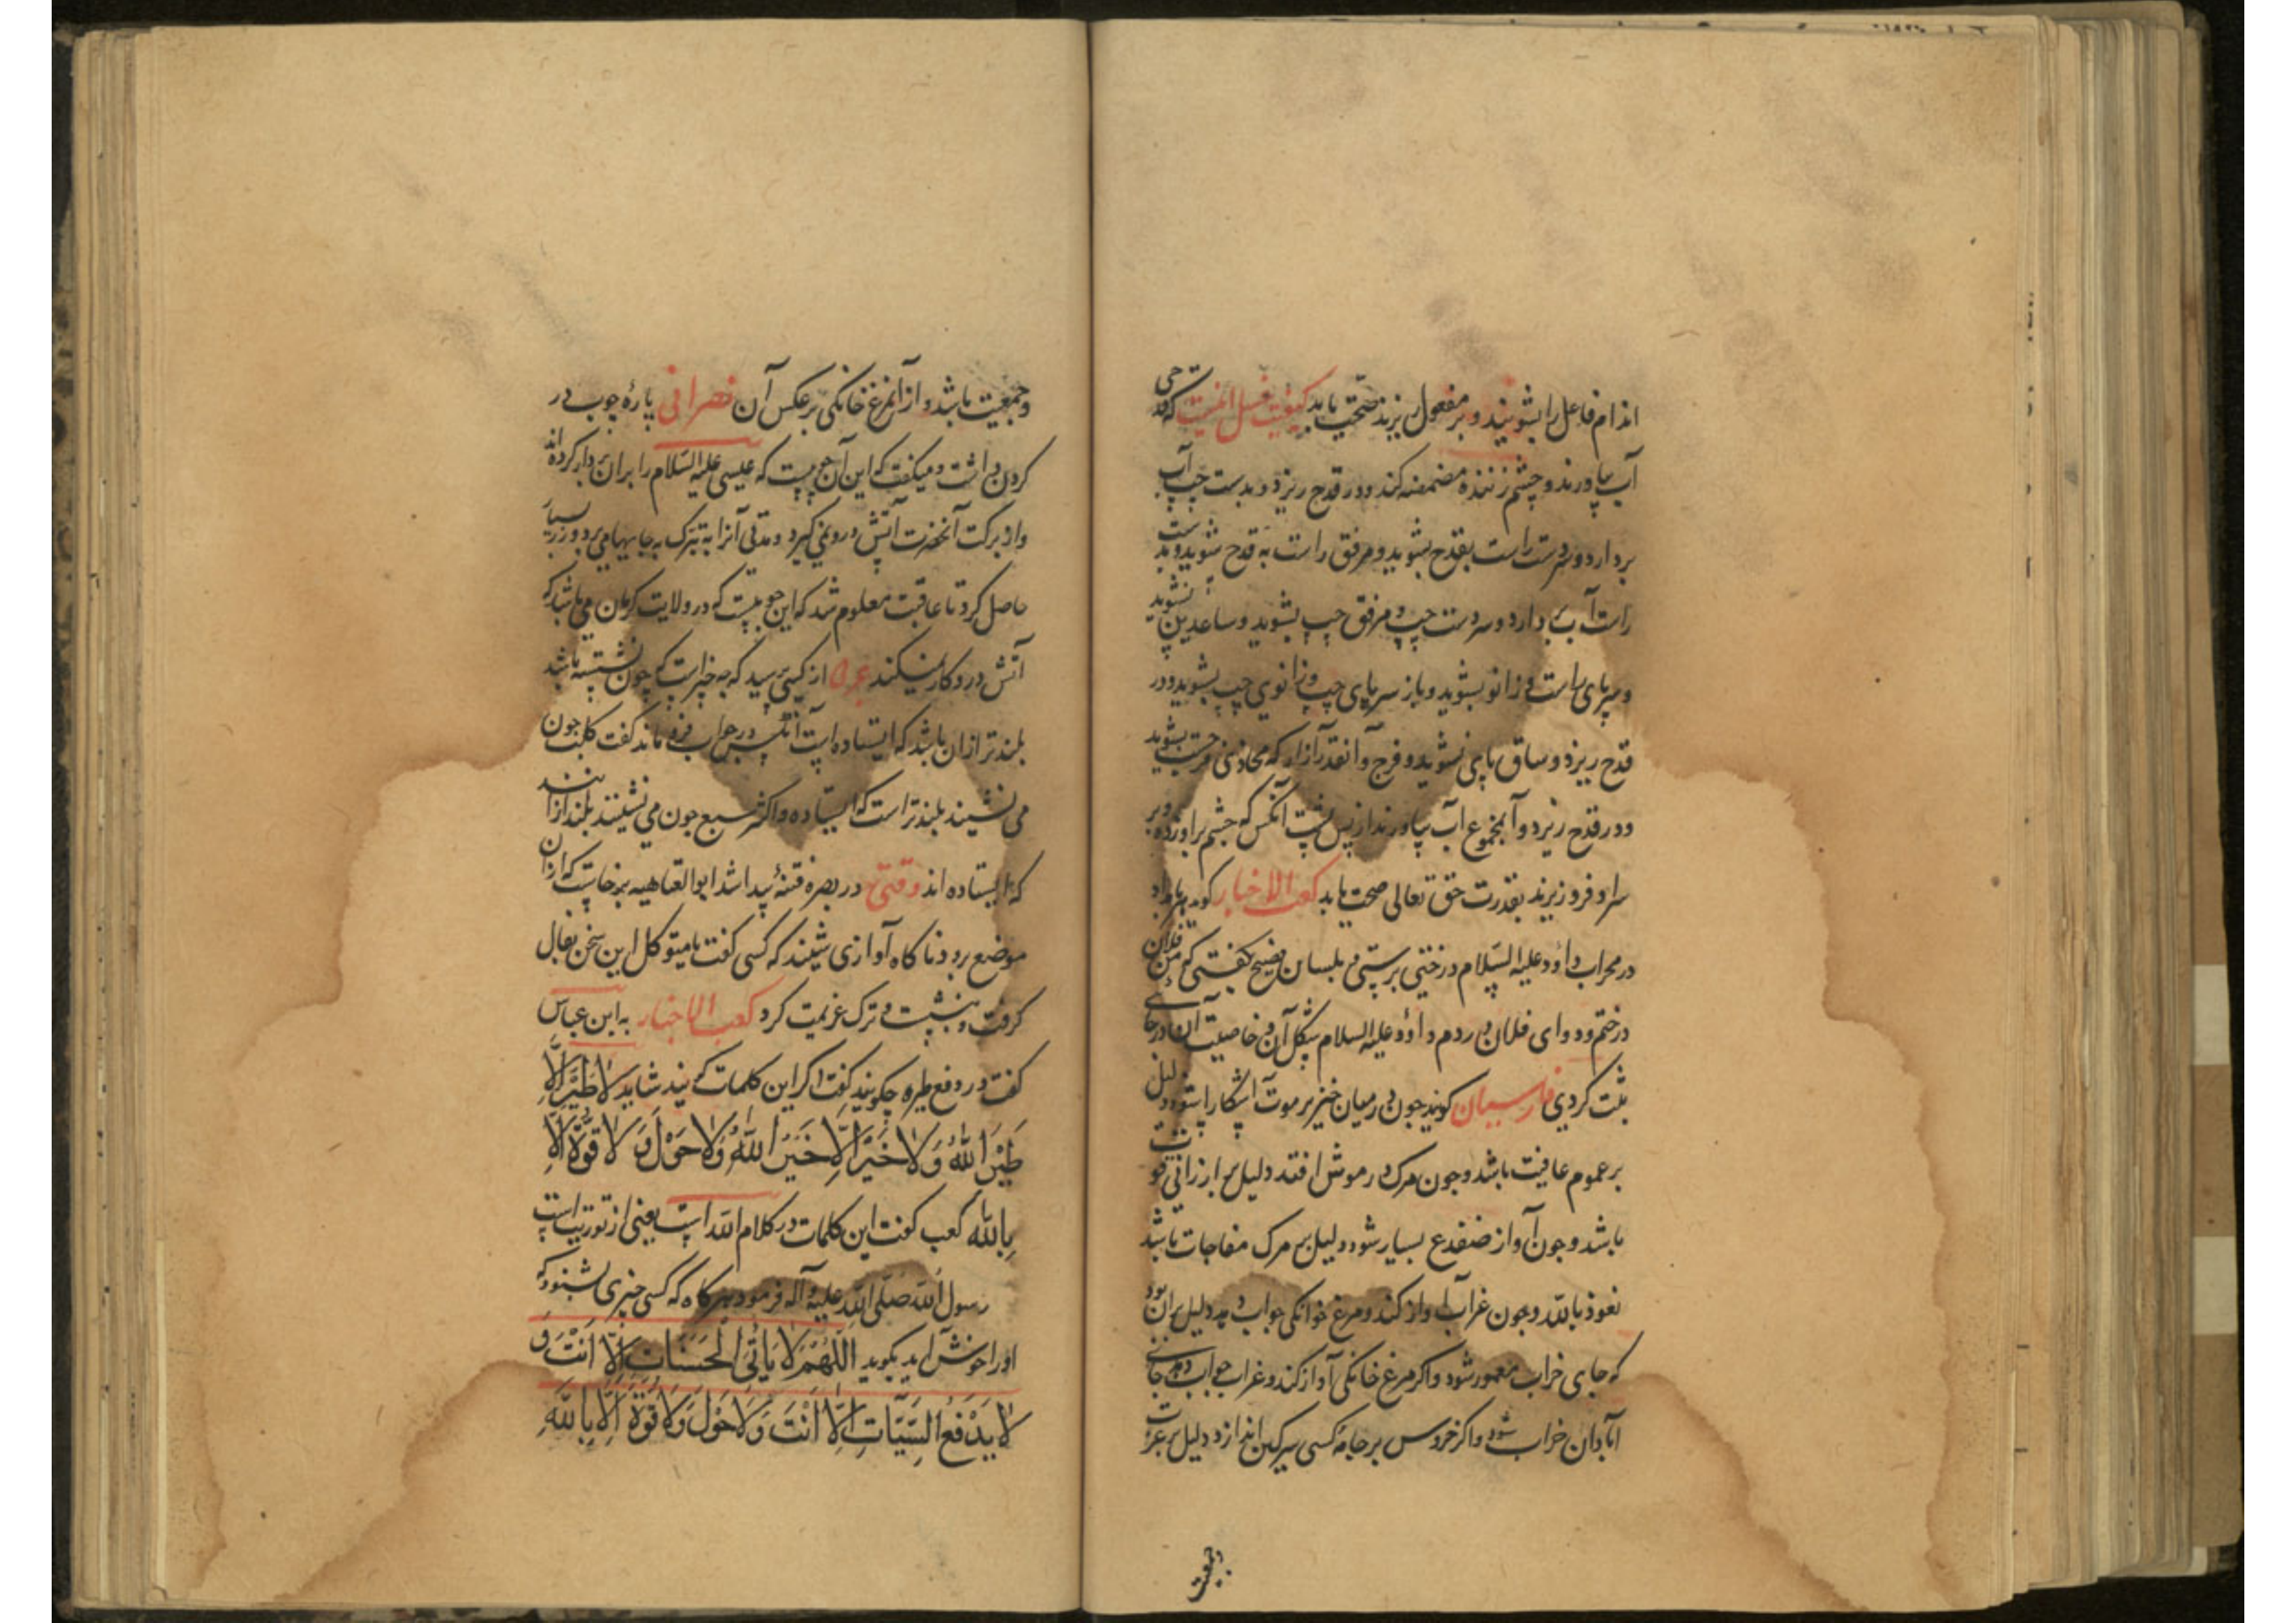 اندام فاعل را بشویند و بر مفعول ریزند صحت یابد کیفیت غسل آنست که قدحی
آب بیاورند و چشم زننده مضمضه کند و در قدح ریزد و بدست چپ آب
بردارد و سر دست راست بقدح بشوید و مرفق راست به قدح شوید و بدست
راست آب بردارد و سر دست چپ و مرفق چپ بشوید و ساعدین نشوید
و سر پای راست و زانو بشوید و باز سر پای چپ و زانوی چپ بشوید و در
قدح ریزد و ساق پای نشوید و فرج و آنقدر از ازار که محاذی فرجست بشوید
و در قدح ریزد و آن مجموع آب بیاورند از پس پشت آنکس که چشم بر او زده و بر
سر او فرو ریزند بقدرت حق تعالی صحت یابد کعب الاخبار کوید هر بامداد
در محراب داود علیه السلام درختی برستی و بلسان فصیح بکفتی که من فلان
درختم و دوای فلان دردم داود علیه السلام شکل آن و خاصیت آن در جای
ثبت کردی فارسیان کویند چون در میان خنزیر موت آشکارا شود دلیل
بر عموم عافیت باشد و چون مرک در موش افتد دلیل بر ارزانی قوت
باشد و چون آواز ضفدع بسیار شود دلیل بر مرک مفاجات باشد
نعوذ بالله و چون غراب آواز کند و مرغ خوانکی جواب دهد دلیل بر آن بود
که جای خراب معمور شود و اکر مرغ خانکی آواز کند و غراب جواب دهد جای
آبادان خراب شود و اکر خروس بر جامهٔ کسی سرکین اندازد دلیل بر عزت
وجمعیت
وجمعیت باشد و از آن مرغ خانکی بر عکس آن نصرانی پارهٔ چوب در
کردن داشت و میکفت که این آن چوبیست که عیسی علیه السلام را بر آن بر دار کرده اند
و از برکت آنحضرت آتش در و نمی کیرد و مدتی آنرا به تبرک به جایها می برد و زر بسیار
حاصل کرد تا عاقبت معلوم شد که این چوبیست که در ولایت کرمان می باشد که
آتش در و کار نمیکند از کسی پرسید که چه چیز است که چون نشسته باشد
بلندتر از آن باشد که ایستاده است آنکس در جواب فرو ماند کفت کلبست چون
می نشیند بلندتر است که ایستاده و اکثر سبع چون می نشینند بلندتر از آنند
که ایستاده اند وقتی در بصره فتنهٔ پیدا شد ابوالعتاهیه برخاست که از آن
موضع برود ناکاه آوازی شنید که کسی کفت یا متوکل این سخن بفال
کرفت و بنشست و ترک عزیمت کرد کعب الاخبار به ابن عباس
کفت در دفع طیره چکویند کفت اکر این کلمات کویند شاید لَا طَیْرَ اِلَّا
طَیْرَ اللهُ وَلَا خَیْرَ اِلَّا خَیْرَ اللهُ وَلَا حَوْلَ وَ لَا قُوَّةَ اِلَّا
بِاللهِ کعب کفت این کلمات در کلام الله است یعنی از توریتست
رسول الله صلی الله علیه و آله فرمود هر کاه که کسی چیزی بشنود که
او را خوش آید بکوید اَللّٰهُمَّ لَا یَأْتِی الْحَسَنَاتِ اِلَّا اَنْتَ وَ
لَا یَدْفَعُ السَّیِّآتِ اِلَّا اَنْتَ وَ لَا حَوْلَ وَ لَا قُوَّةَ اِلَّا بِاللّٰهِ